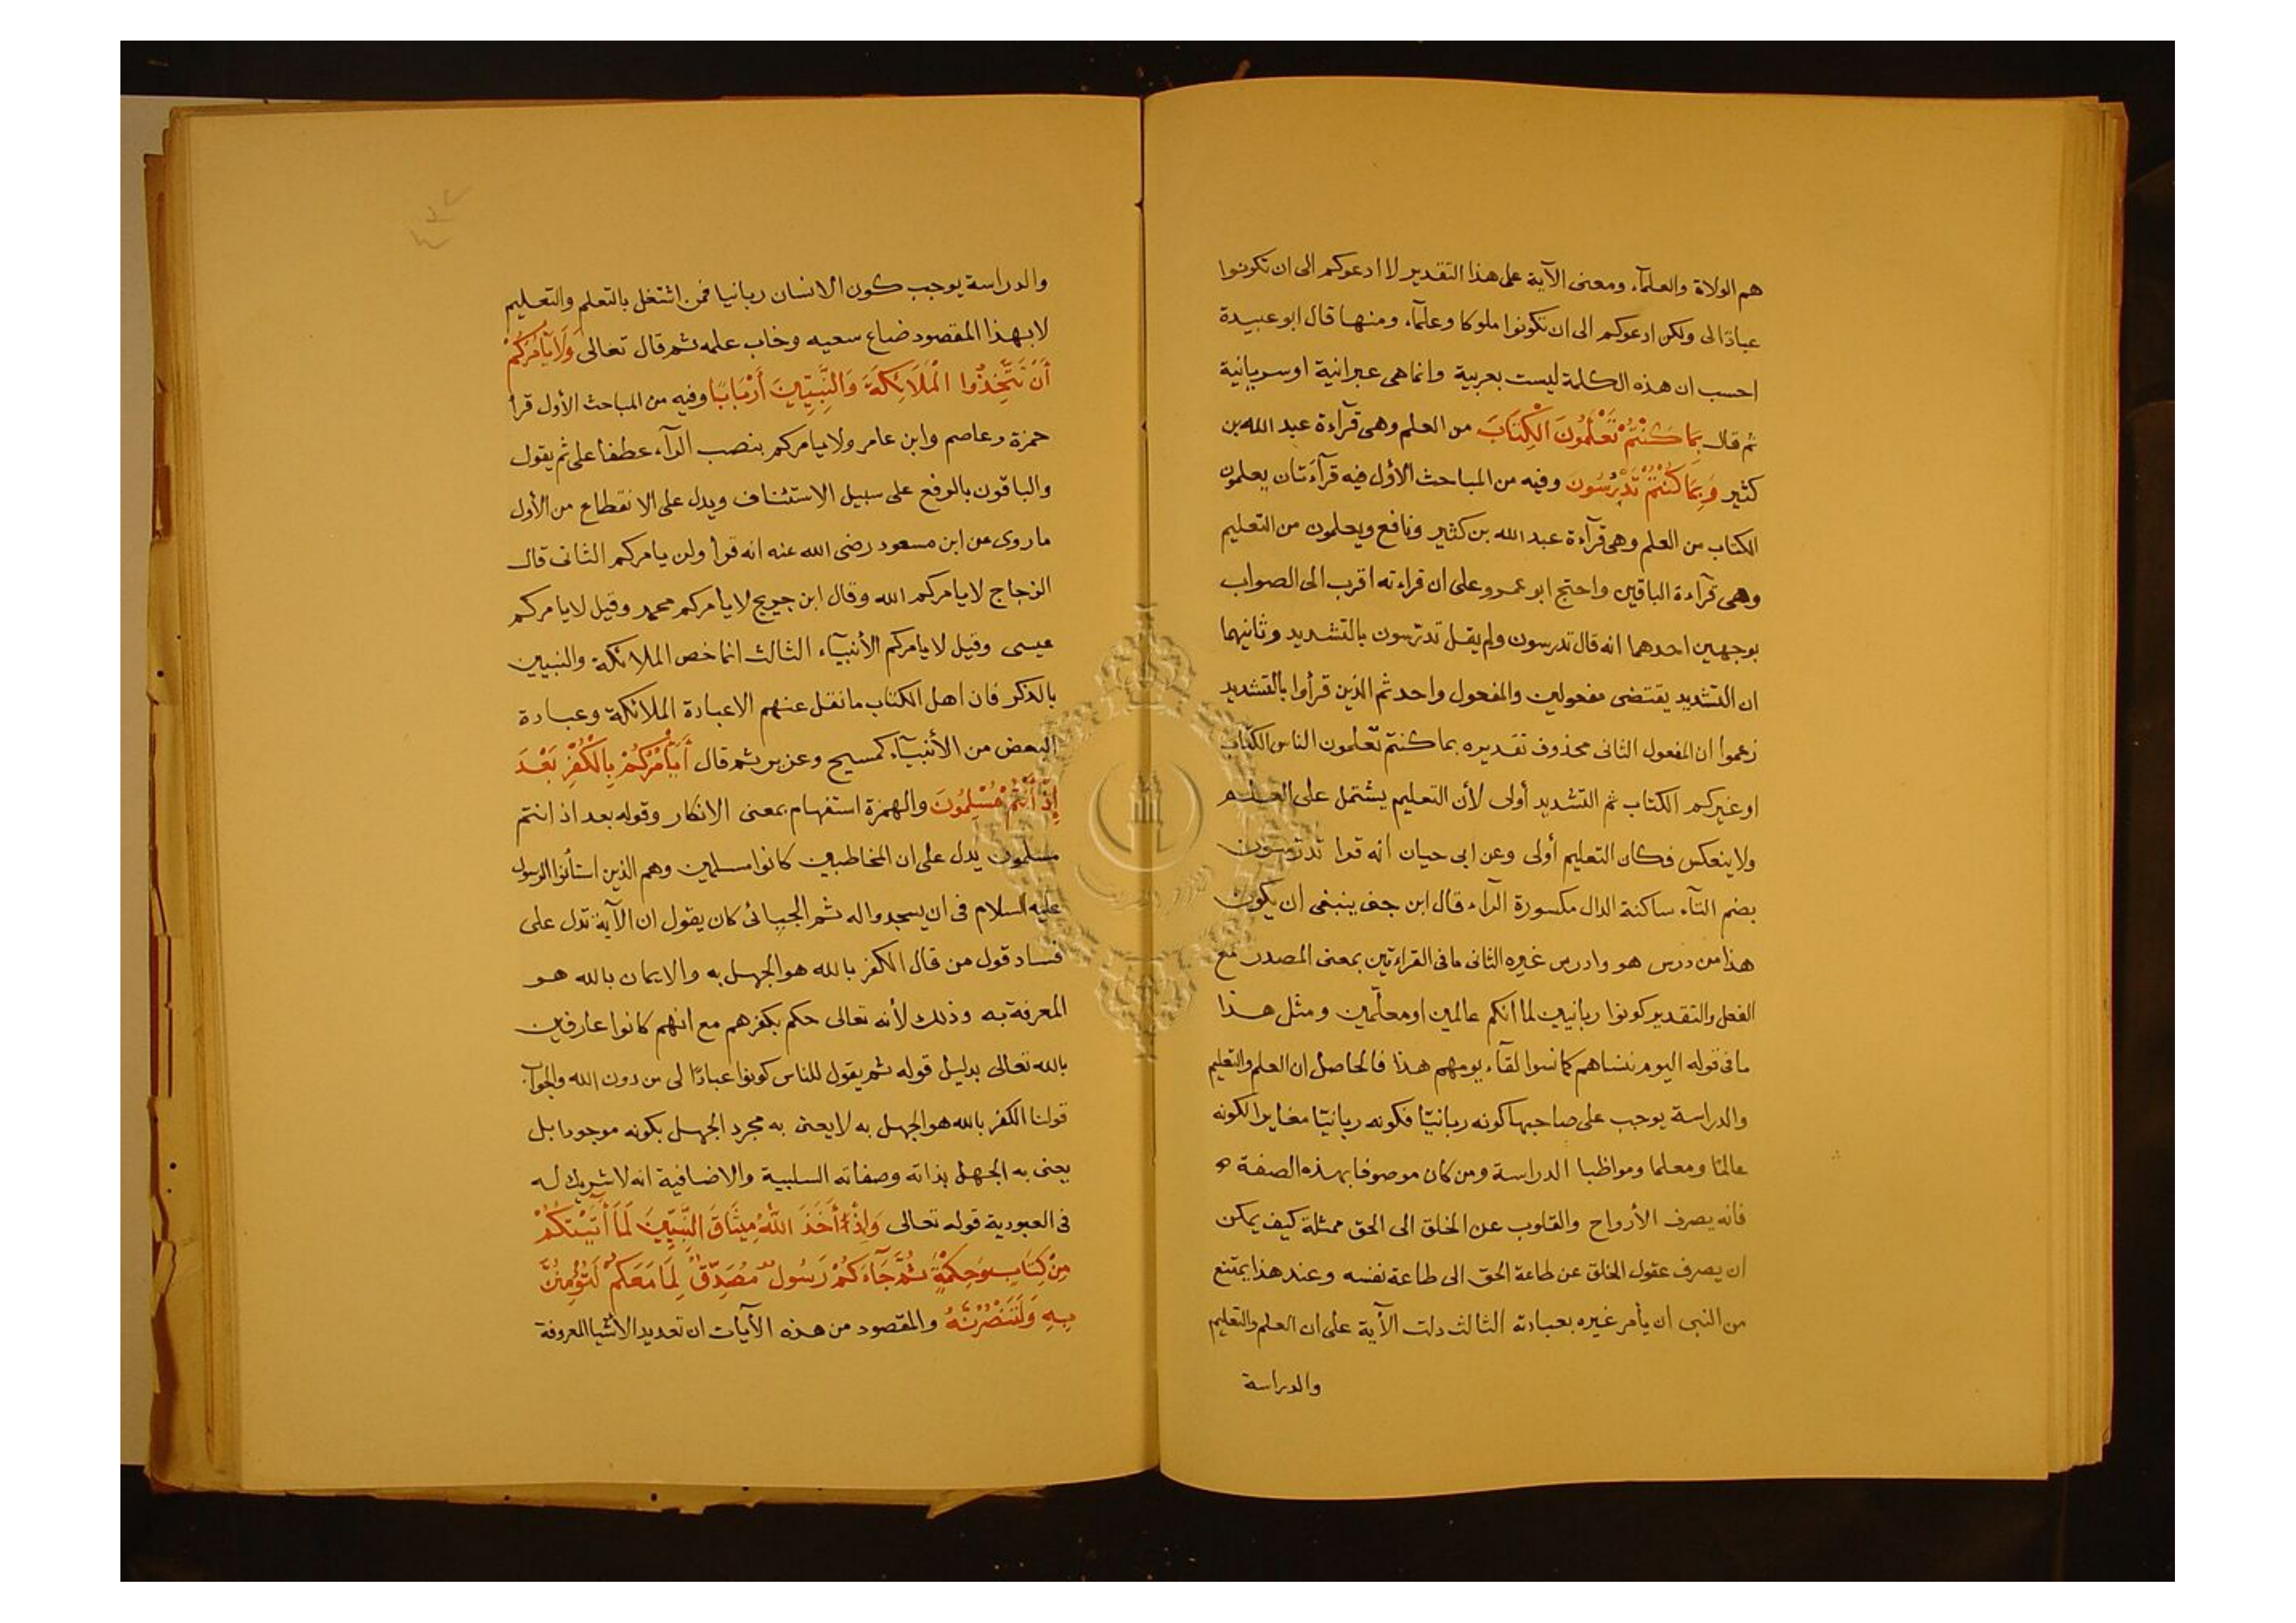 هم الولاة والعلمآء ومعنى الآية على هذا التقدير لا ادعوكم الى ان تكونوا
عبادا لى ولكن ادعوكم الى ان تكونوا ملوكا وعلمآء ومنها قال ابو عبيدة
احسب ان هذه الكلمة ليست بعربية وانما هى عبرانية او سريانية
ثم قال بِمَا كُنْتُمْ تَعْلَمُونَ الْكِتَابَ من العلم وهى قرآءة عبد الله بن
كثير وَبِمَا كُنْتُمْ تَدْرُسُونَ وفيه من المباحث الأول فيه قرآءتان يعلمون
الكتاب من العلم وهى قرآءة عبد الله بن كثير ونافع ويعلمون من التعليم
وهى قرآءة الباقين واحتج ابو عمرو على ان قراءته اقرب الى الصواب
بوجهين احدهما انه قال تدرسون ولم يقل تدرّسون بالتشديد وثانيهما
ان التشديد يقتضى مفعولين والمفعول واحد ثم الذين قرأوا بالتشديد
زعموا ان المفعول الثانى محذوف تقديره بما كنتم تعلمون الناس الكتاب
او غيركم الكتاب ثم التشديد أولى لأن التعليم يشتمل على العلم
ولا ينعكس فكان التعليم أولى وعن ابى حيان انه قرا تدرسون
بضم التآء ساكنة الدال مكسورة الرآء قال ابن جنى ينبغى ان يكون
هذا من درس هو وادرس غيره الثانى ما فى القراءتين بمعنى المصدر مع
الفعل والتقدير كونوا ربانيين لما انكم عالمين او معلّمين ومثل هذا
ما فى قوله اليوم ننساهم كما نسوا لقآء يومهم هذا فالحاصل ان العلم والتعليم
والدراسة يوجب على صاحبها كونه ربانيّا فكونه ربانيّا مغايرا لكونه
عالمًا ومعلما ومواظبا الدراسة ومن كان موصوفا بهذه الصفة
فانه يصرف الأرواح والقلوب عن الخلق الى الحق ممثلة كيف يمكن
ان يصرف عقول الخلق عن طاعة الحق الى طاعة نفسه وعند هذا يمتنع
من النبى ان يأمر غيره بعبادته الثالث دلت الآية على ان العلم والتعليم
والدراسة
والدراسة يوجب كون الانسان ربانيا فمن اشتغل بالتعلم والتعليم
لا بهذا المقصود ضاع سعيه وخاب علمه ثم قال تعالى وَلَا يَأْمُرَكُمْ
أَنْ تَتَّخِذُوا الْمَلَائِكَةَ وَالنَّبِيِّينَ أَرْبَابًا وفيه من المباحث الأول قرأ
حمزة وعاصم وابن عامر ولا يامركم بنصب الرآء عطفا على ثم يقول
والباقون بالرفع على سبيل الاستئناف ويدل على الانقطاع من الأول
ما روى عن ابن مسعود رضى الله عنه انه قرأ ولن يامركم الثانى قال
الزجاج لا يامركم الله وقال ابن جريج لا يأمركم محمد وقيل لا يامركم
عيسى وقيل لا يامركم الأنبيآء الثالث انما خص الملائكة والنبيين
بالذكر فان اهل الكتاب ما نقل عنهم الا عبادة الملائكة وعبادة
البعض من الأنبيآء كمسيح وعزير ثم قال أَيَأْمُرُكُمْ بِالْكُفْرِ بَعْدَ
إِذْ أَنْتُمْ مُسْلِمُونَ والهمزة استفهام بمعنى الانكار وقوله بعد اذ انتم
مسلمون يدل على ان المخاطبين كانوا مسلمين وهم الذين استأذنوا الرسول
عليه السلام فى ان يسجدوا له ثم الجبائى كان يقول ان الآية تدل على
فساد قول من قال الكفر بالله هو الجهل به والايمان بالله هو
المعرفة به وذلك لأنه تعالى حكم بكفرهم مع انهم كانوا عارفين
بالله تعالى بدليل قوله ثم يقول للناس كونوا عبادًا لى من دون الله والجواب
قولنا الكفر بالله هو الجهل به لا يعنى به مجرد الجهل بكونه موجودا بل
يعنى به الجهل بذاته وصفاته السلبية والاضافية انه لا شريك له
فى العبودية قوله تعالى وَإِذْ أَخَذَ اللَّهُ مِيثَاقَ النَّبِيِّينَ لَمَا أَتَيْتُكُمْ
مِنْ كِتَابٍ وَحِكْمَةٍ ثُمَّ جَآءَكُمْ رَسُولٌ مُصَدِّقٌ لِمَا مَعَكُمْ لَتُؤْمِنُنَّ
بِهِ وَلَتَنْصُرُنَّهُ والمقصود من هذه الآيات ان تعديد الأشيا المعروفة